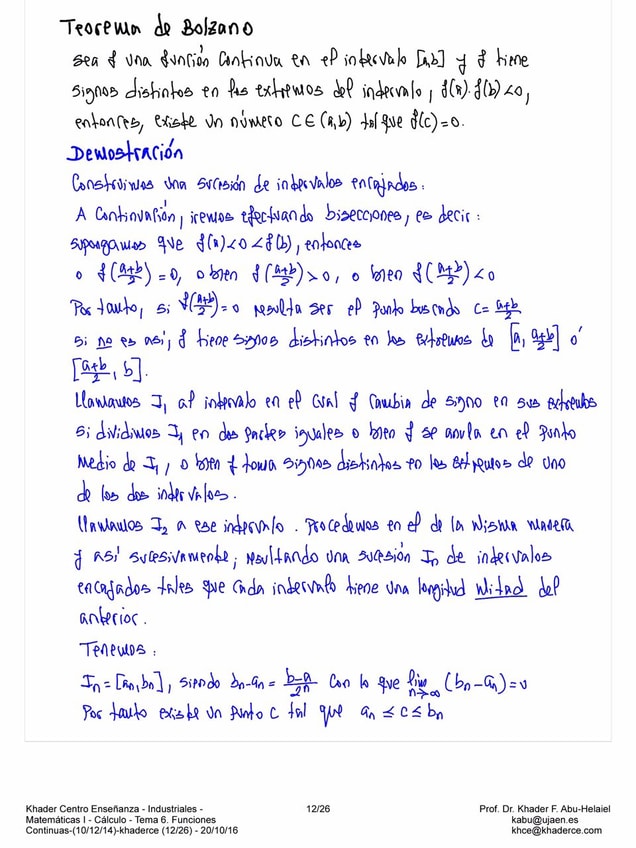 Teorema de Bolzano
Sea f una función continua en el intervalo [a,b] y f tiene
signos distintos en los extremos del intervalo, f(a)·f(b)<0,
entonces, existe un número C∈(a,b) tal que f(c)=0.
Demostración
Construimos una sucesión de intervalos encajados:
A continuación, iremos efectuando bisecciones, es decir:
supongamos que f(a)<0<f(b), entonces
o f((a+b)/2)=0, o bien f((a+b)/2)>0, o bien f((a+b)/2)<0
Por tanto, si f((a+b)/2)=0 resulta ser el punto buscado c=(a+b)/2
si no es así, f tiene signos distintos en los extremos de [a, (a+b)/2] ó
[(a+b)/2, b].
Llamamos I₁ al intervalo en el cual f cambia de signo en sus extremos
si dividimos I₁ en dos partes iguales o bien f se anula en el punto
medio de I₁, o bien f toma signos distintos en los extremos de uno
de los dos intervalos.
llamamos I₂ a ese intervalo. Procedemos en el de la misma manera
y así sucesivamente; resultando una sucesión In de intervalos
encajados tales que cada intervalo tiene una longitud mitad del
anterior.
Tenemos:
In=[an,bn], siendo bn-an=(b-a)/2ⁿ con lo que lim n→∞ (bn-an)=0
Por tanto existe un punto c tal que an ≤ c ≤ bn
Khader Centro Enseñanza - Industriales -
Matemáticas I - Cálculo - Tema 6. Funciones
Continuas-(10/12/14)-khaderce (12/26) - 20/10/16
12/26
Prof. Dr. Khader F. Abu-Helaiel
kabu@ujaen.es
khce@khaderce.com